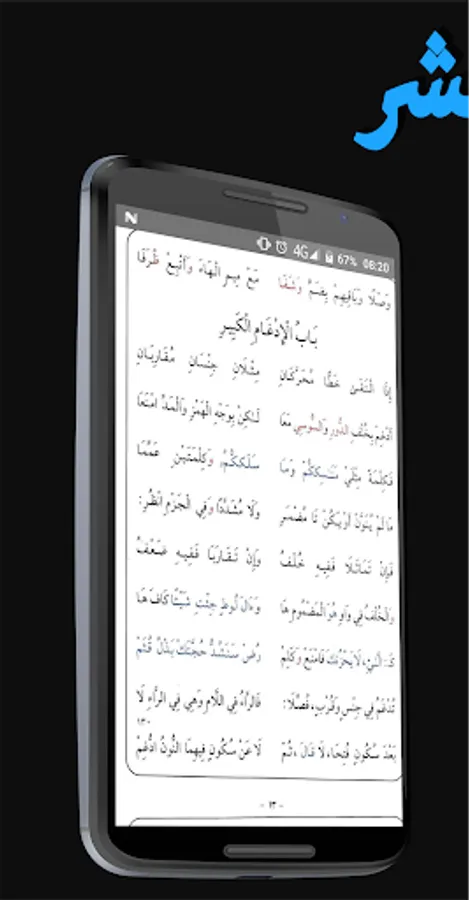 شر
N 4G 67% 08:20
وَصْلًا وَبَاقِيهِمْ بِضَمٍّ وَشَفَا مَعْ مِيمٍ الْهَاءَ وَأَتْبِعْ ظُرَفَا
بَابُ الْإِدْغَامِ الْكَبِيرِ
إِذَا الْتَقَى خَطًّا مُحَرَّكَانِ مِثْلَانِ جِنْسَانِ مُقَارِبَانِ
أَدْغِمْ بِخُلْفِ الدُّورِ وَالسُّوسِي مَعَا لَكِنْ بِوَجْهِ الْهَمْزِ وَالْمَدِّ امْنَعَا
فَكِلْمَةً مِثْلَيْ مَنَاسِكَكُّمْ وَمَا سَلَكَكُّمْ، وَكِلْمَتَيْنِ عَمِّمَا
مَا لَمْ يُنَوَّنْ أَوْ يَكُنْ تَا مُضْمَرِ وَلَا مُشَدَّدًا وَفِي الْجَزْمِ انْظُرِ:
فَإِنْ تَمَاثَلَا فَفِيهِ خُلْفُ وَإِنْ تَقَارَبَا فَفِيهِ ضَعْفُ
وَالْخُلْفُ فِي وَاوِ هُوَ الْمَضْمُومِ هَا وَءَالَ لُوطٍ جِئْتِ شَيْئًا كَافَ هَا
كَـ: الَّئِي، لَا يَحْزُنكَ فَامْنَعْ وَكَلِمْ رُضْ سَنَشُدُّ حُجَّتَكْ بَذْلُ قُثَمْ
تُدْغَمُ فِي جِنْسٍ وَقُرْبٍ، فُصِّلَا: فَالرَّاءُ فِي اللَّامِ وَهِيَ فِي الرَّاءِ لَا
١٣٠
بَعْدَ سُكُونٍ فُتِحَا، لَا قَالَ، ثُمْ لَا عَنْ سُكُونٍ فِيهِمَا النُّونُ ادُّغِمْ
- ١٣ -